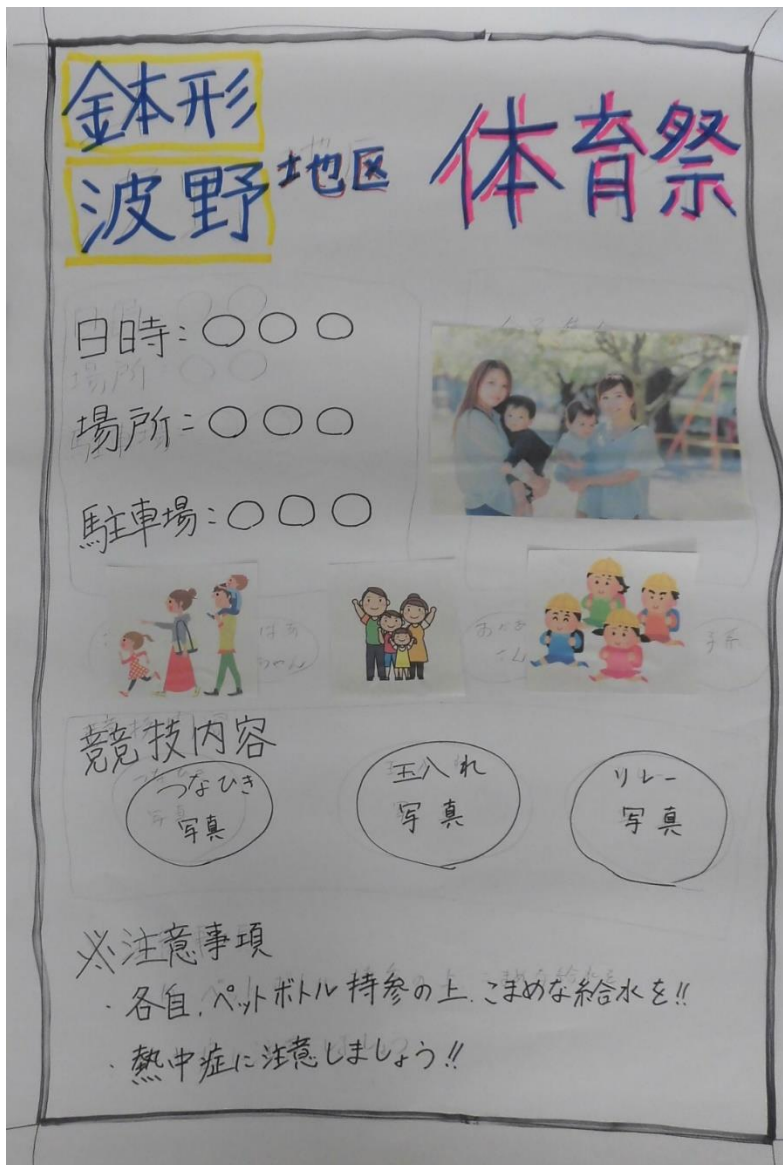 鉢形
波野地区 体育祭
日時:○○○
場所:○○○
駐車場:○○○
競技内容
つなひき
写真
玉入れ
写真
リレー
写真
※注意事項
・各自、ペットボトル持参の上、こまめな給水を!!
・熱中症に注意しましょう!!